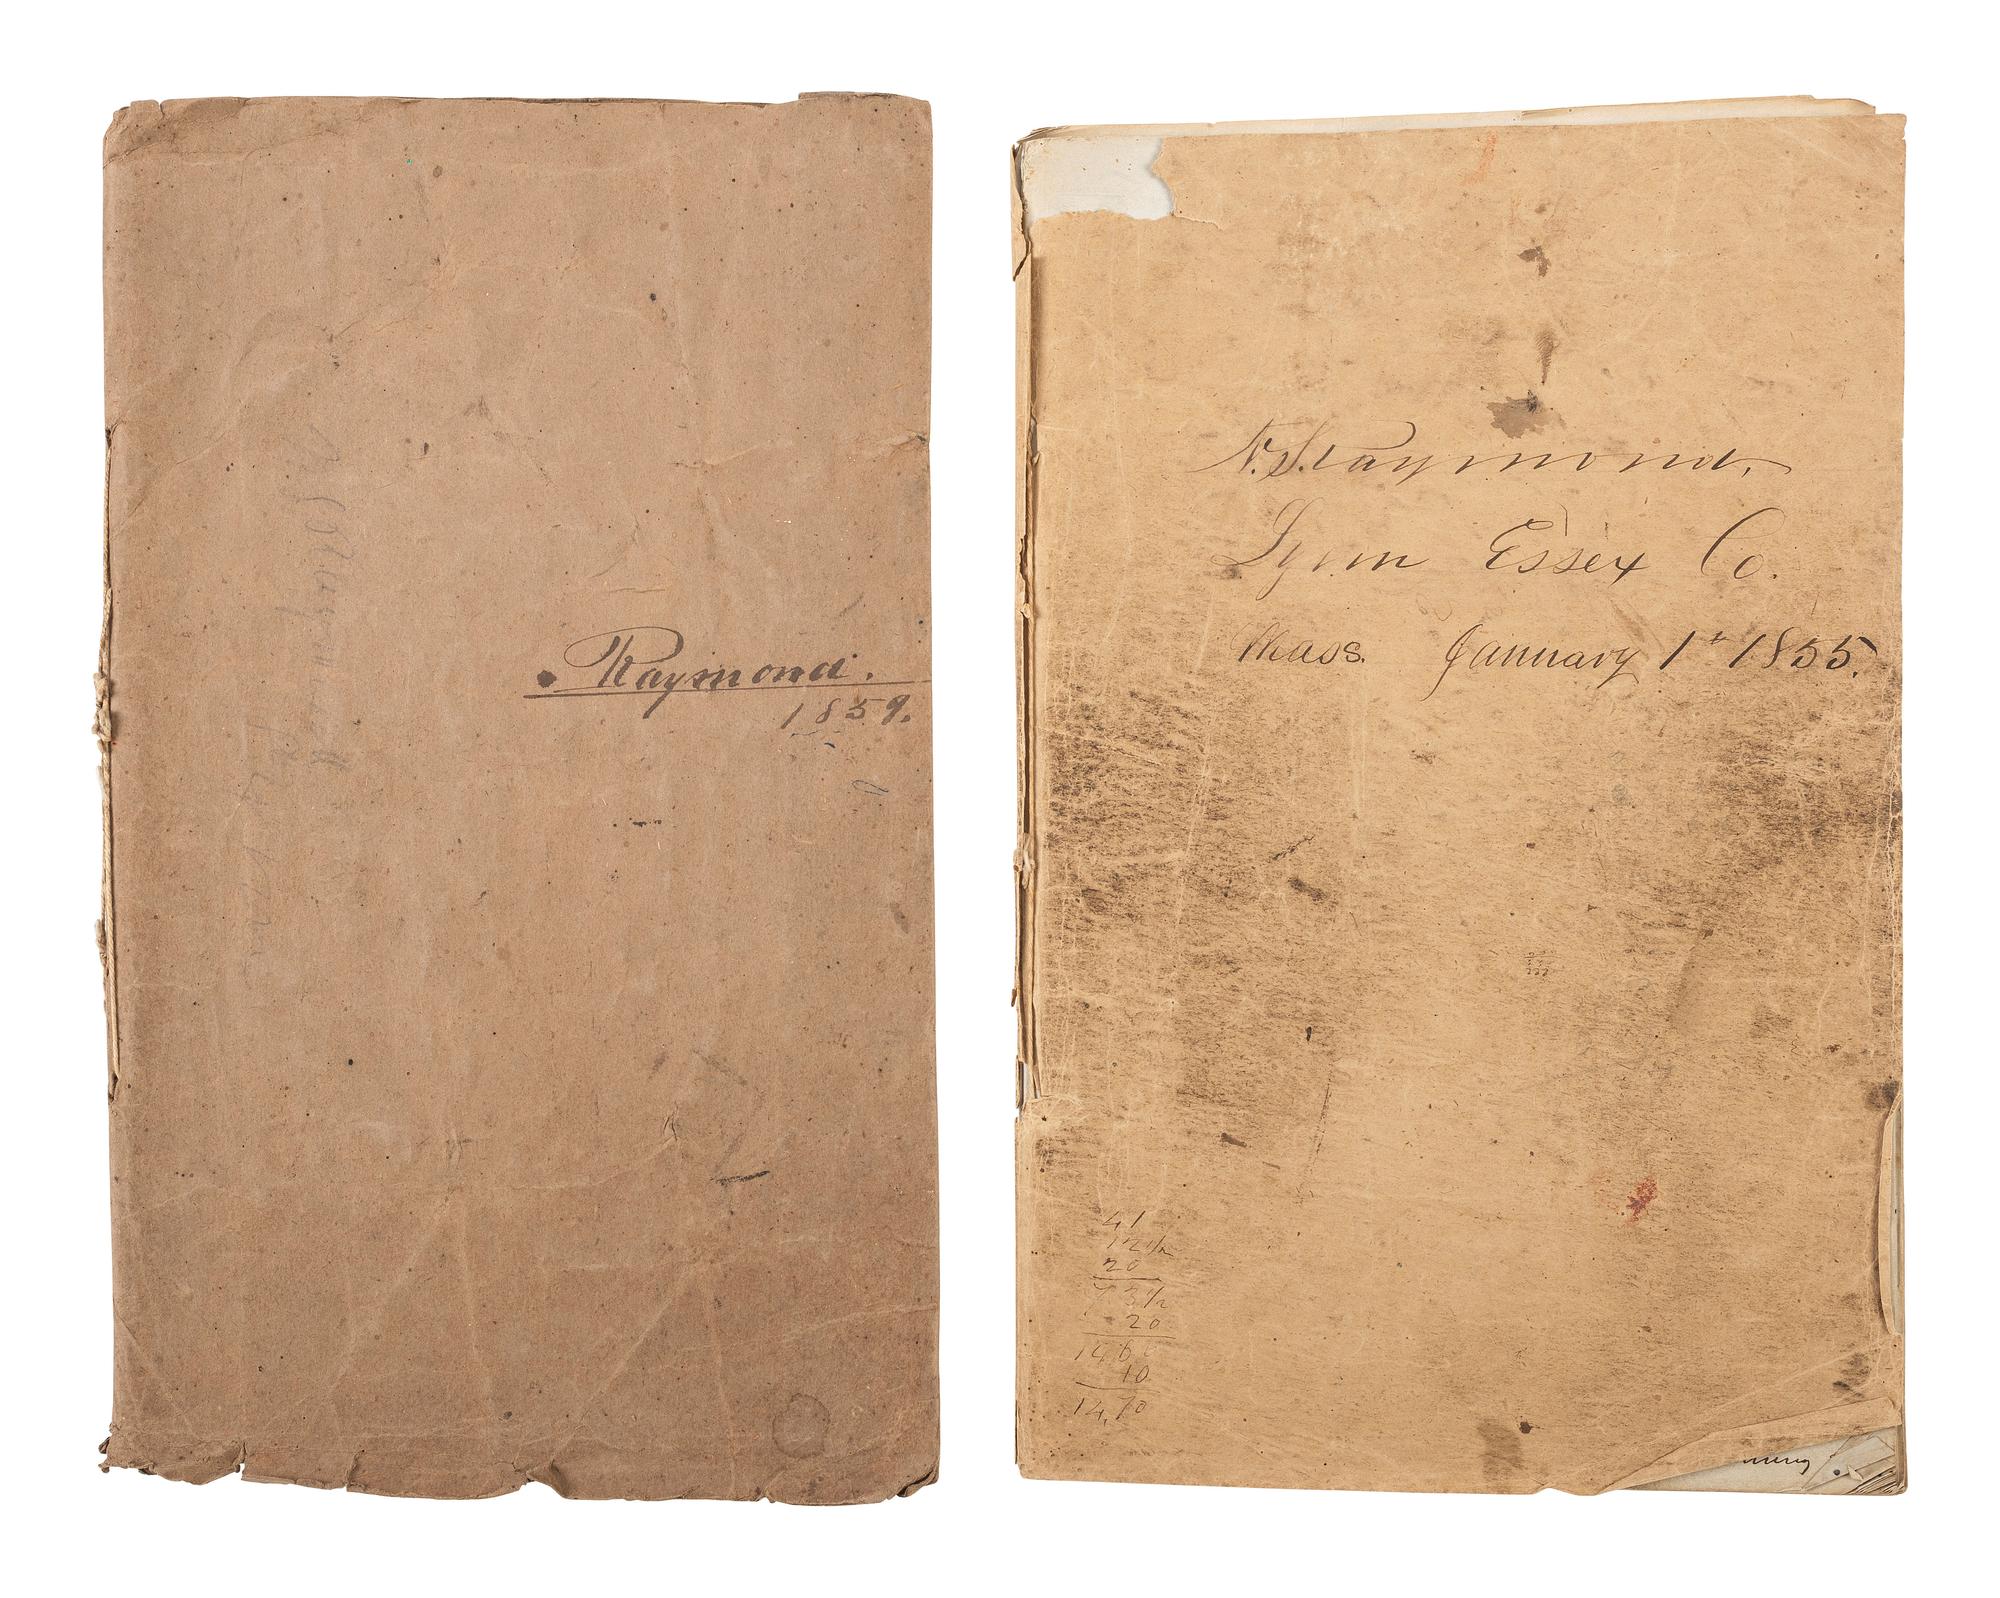 Raymond.
1859.
F. S. Raymond,
Lynn Essex Co.
Mass. January 1st 1855.
41
12 1/2
20
73 1/2
20
14 60
10
14,70